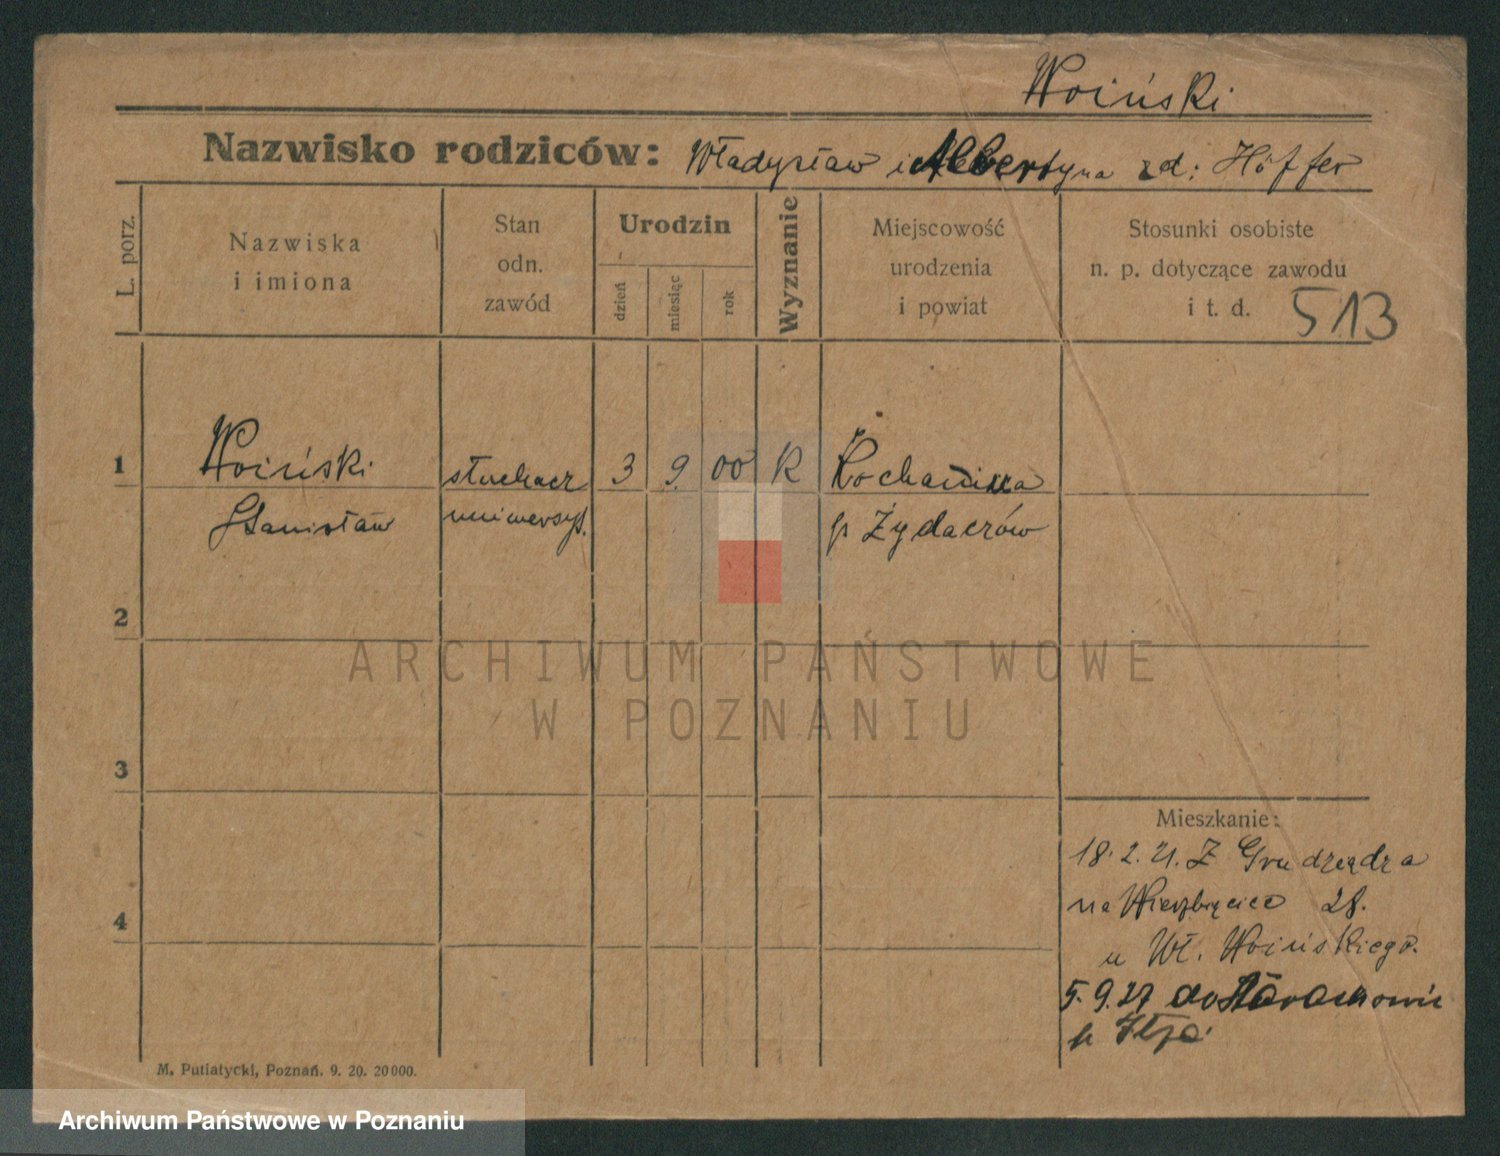 Woiński
Nazwisko rodziców: Władysław i Albertyna zd: Höffer
L. porz.
Nazwiska
i imiona
Stan
odn.
zawód
Urodzin
dzień
miesiąc
rok
Wyznanie
Miejscowość
urodzenia
i powiat
Stosunki osobiste
n. p. dotyczące zawodu
i t. d.
513
1
Woiński
Stanisław
słuchacz
uniwersyt.
3
9.
00
R
Kochawina
p Żydaczów
2
3
4
Mieszkanie:
18.2.21. Z Grudziądza
na Wierzbięcice 28.
u Wł. Woińskiego.
5.9.27 do Starachowic
p Iłża.
M. Putiatycki, Poznań. 9. 20. 20000.
ARCHIWUM PAŃSTWOWE
W POZNANIU
Archiwum Państwowe w Poznaniu